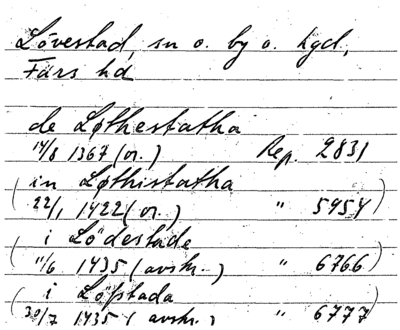 Lövestad, sn o. by o. hgd,
Färs hd
de Løthestatha
14/8 1367 (or.) Rep. 2831
(in Løthistatha
22/1 1422 (or.) " 5954)
(i Lödestade
11/6 1435 (avskr.) " 6766)
(i Löþstada
30/7 1435 (avskr.) " 6777